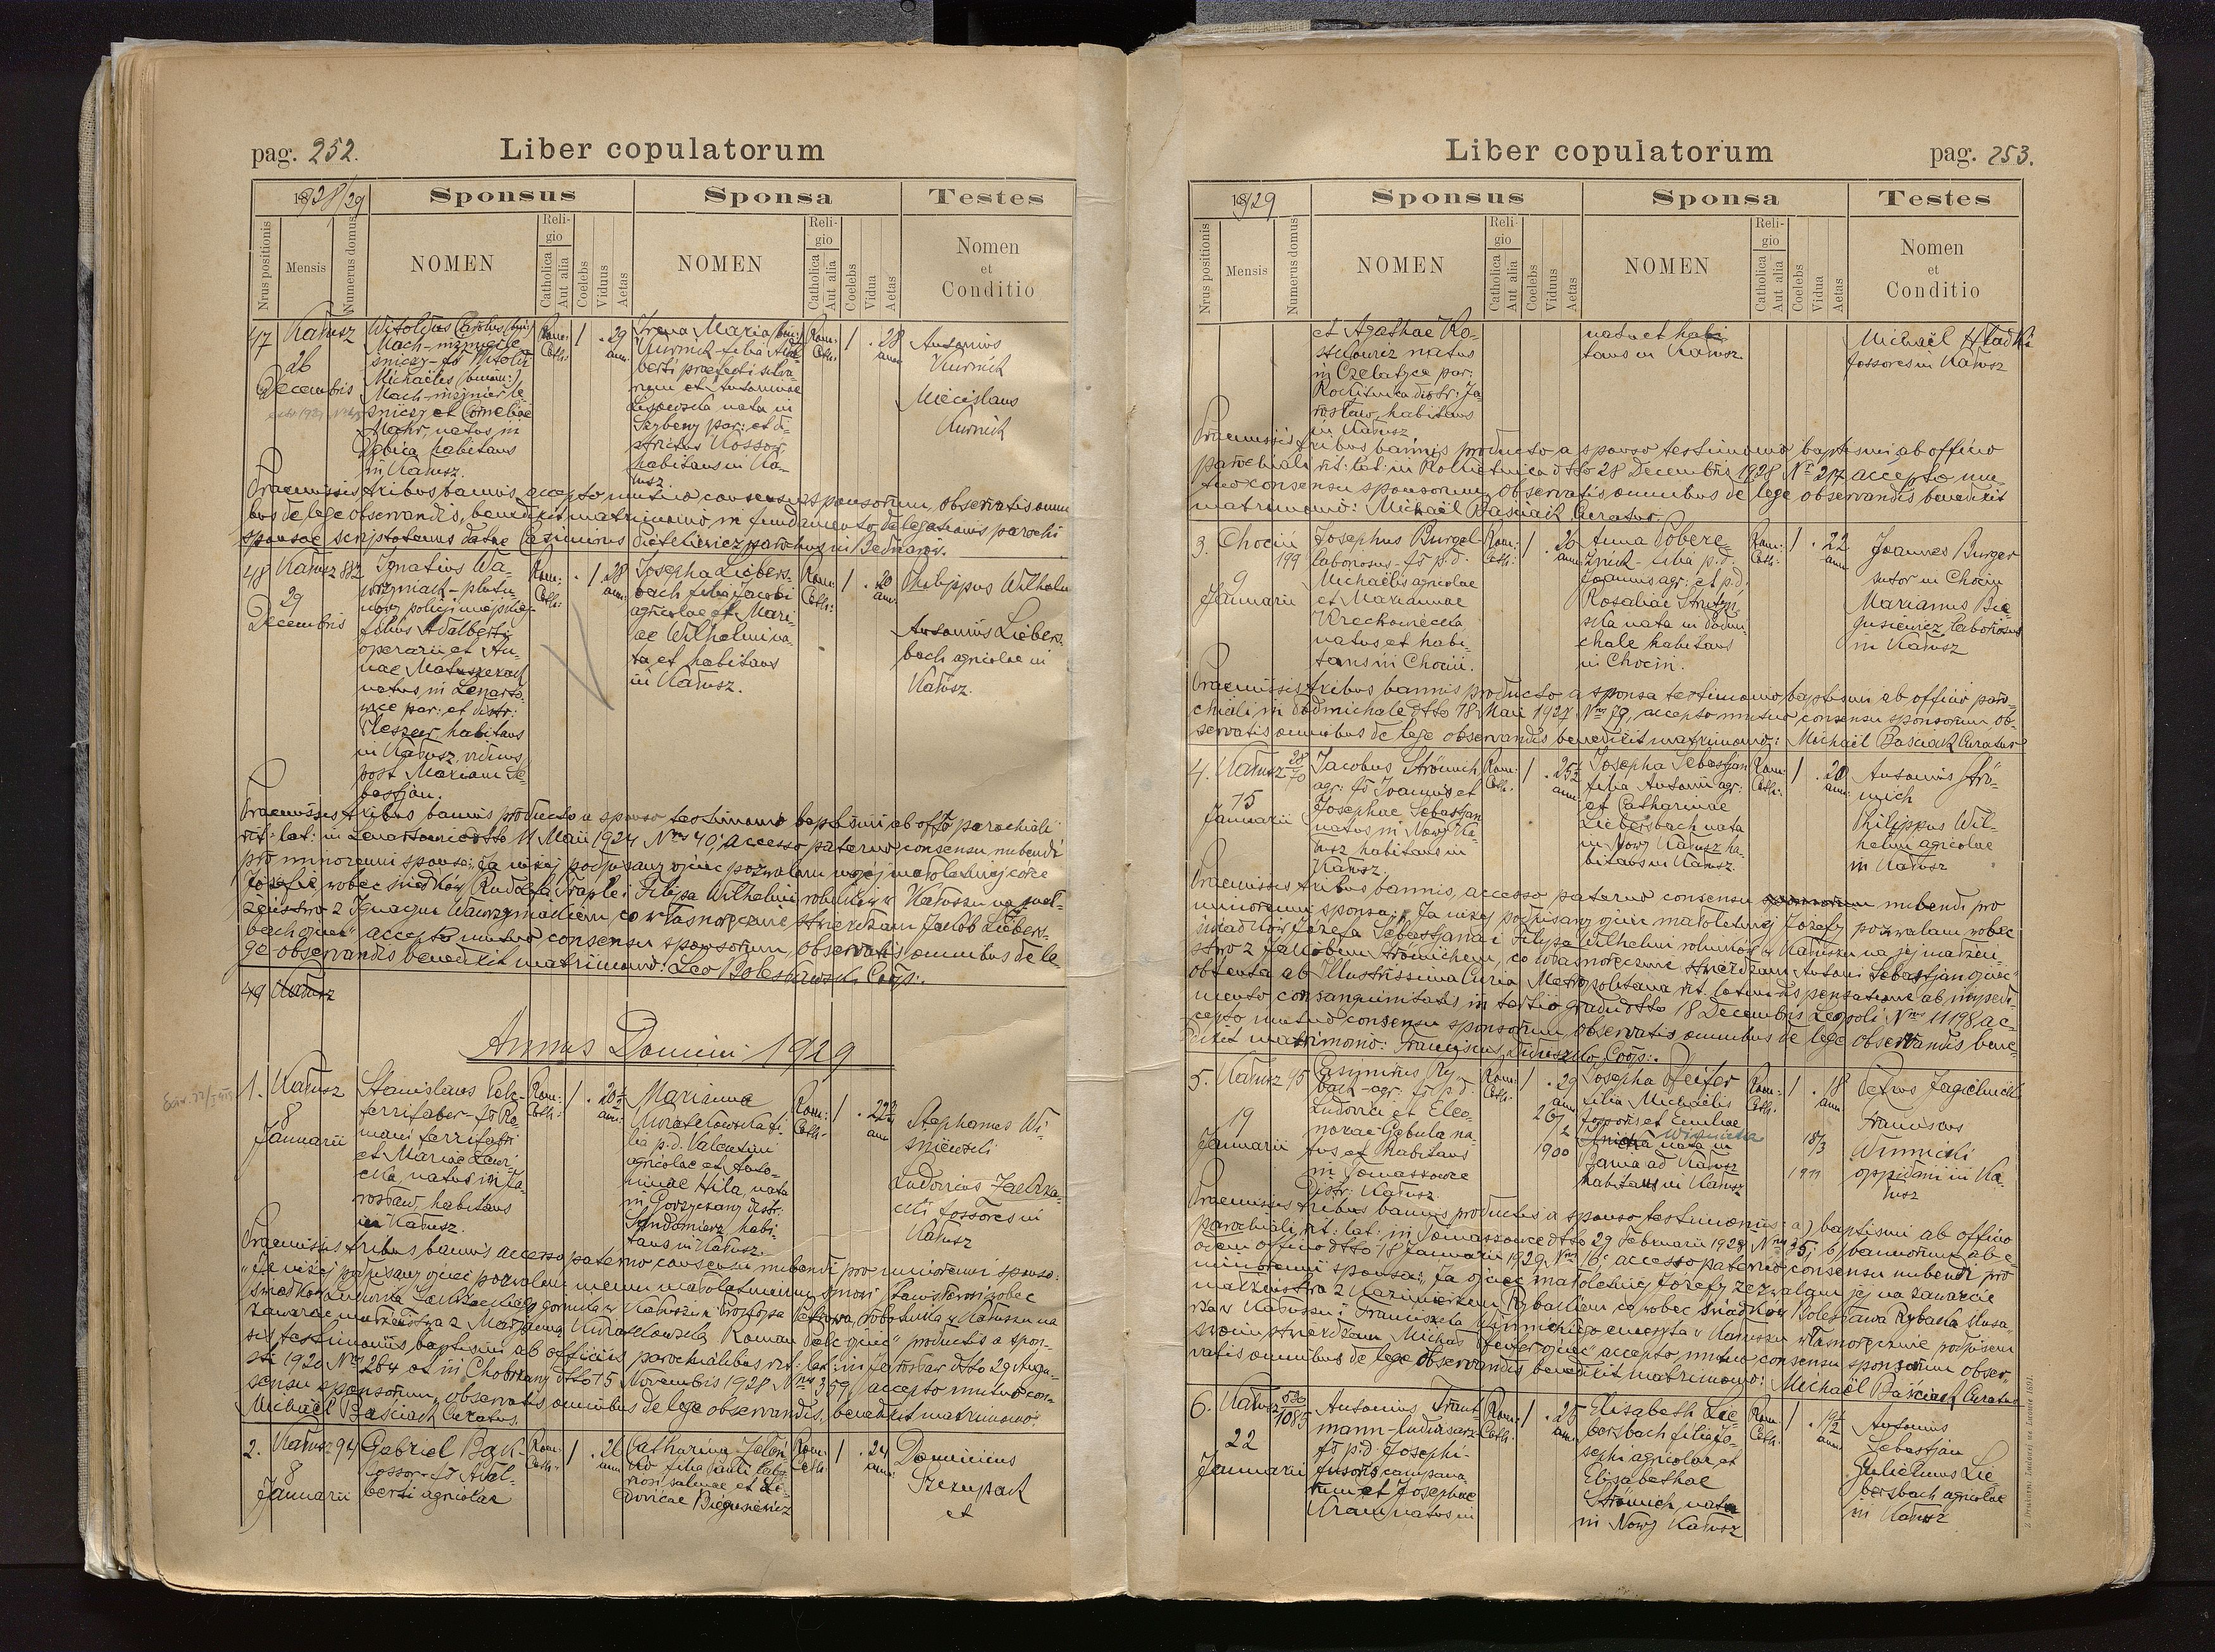 pag. 252.
Liber copulatorum
1928/29
Sponsus
Sponsa
Testes
Nrus positionis
Mensis
Numerus domus
NOMEN
Religio
Catholica
Aut alia
Coelebs
Viduus
Aetas
NOMEN
Religio
Catholica
Aut alia
Coelebs
Vidua
Aetas
Nomen
et
Conditio
47 Kałusz
26
Decembris
Witoldus Carolus (bin:)
Mach-inżynier le-
śniczy - fs Witoldi
Michaëlis (binom:)
Mach-inżynier le-
śniczy et Corneliae
Mahr, natus in
Dębica habitans
in Kałusz.
Rom:
Cath:
1 . 29
ann:
Irena Maria (bin:)
Kurnik - filia Adal-
berti praefecti silva-
rum et Antoninae
Lisowska nata in
Seybeny par: et di-
strictus Kossow,
habitans in Ka-
łusz.
Rom:
Cath:
1 . 28
ann:
Antonius
Kurnik
Miecislaus
Kurnik
Praemissis tribus bannis, accepto mutuo consensu sponsorum, observatis omni-
bus de lege observandis, benedixit matrimonio, in fundamento delegationis parochi
sponsae scriptotenus datae Casimirus parochus in Bednarów.
48 Kałusz 882
29
Decembris
Ignatius Wa-
wrzyniak - plutu-
nowy policji miejskiej
filius Adalberti
operarii et An-
nae Matuszczak
natus in Lenarto-
wice par: et distr:
Pleszew, habitans
in Kałusz, viduus
post Mariam Se-
bastjan.
Rom:
Cath:
. 1 28
ann:
Josepha Liebers-
bach filia Jacobi
agricolae et Mari-
ae Wilhelmi na-
ta et habitans
in Kałusz.
Rom:
Cath:
1 . 20
ann:
Philippus Wilhelm
Antonius Liebers-
bach agricolae in
Kałusz.
Praemissis tribus bannis producto a sponso testimonio baptismi ab offo parochiali
rit: lat: in Lenartowice dtto 11 Maii 1924 Nrus 40; accesso paterno consensu nubendi
pro minorenni sponsa: „Ja niżej podpisany ojciec pozwalam mojej małoletniej córce
Józefie wobec świadków Rudolfa Trapla i Filipa Wilhelmi rolników w Kałuszu na mał-
żeństwo z Ignacym Wawrzyniakiem, co własnoręcznie stwierdzam Jakób Liebers-
bach ojciec" accepto mutuo consensu sponsorum, observatis omnibus de le-
ge observandis benedixit matrimonio: Leo Bolesławski, Coop:.
49 Kałusz
Annus Domini 1929
1. Kałusz
8
Januarii
Stanislaus Pelc-
ferrifaber - fs Ro-
mani ferrifabri
et Mariae Lewi-
cka, natus in Ja-
rosław, habitans
in Kałusz.
Rom:
Cath:
1 . 20½
ann:
Marianna
Kuratełowska fi-
lia p.d. Valentini
agricolae et Anto-
ninae Hila, nata
in Gorzyczany distr:
Sandomierz, habi-
tans in Kałusz.
Rom:
Cath:
1 . 22
ann
Stephanus Wi-
śniewski
Ludovicus Zackrze-
cki fossores in
Kałusz
Praemissis tribus bannis accesso paterno consensu nubendi pro minorenni sponso:
„Ja niżej podpisany ojciec pozwalam memu małoletniemu synowi Stanisławowi wobec
świadków Ludwika górnika w Kałuszu i Prokopa robotnika w Kałuszu na
zawarcie małżeństwa z Marjanną Kuratełowską Roman Pelc ojciec" productis a spon-
sis testimoniis baptismi ab officiis parochialibus rit: lat: in Jarosław dtto 29 Augu-
sti 1920 Nrus 264 et in Chobrzany dtto 15 Novembris 1928 Nrus 359, accepto mutuo con-
sensu sponsorum, observatis omnibus de lege observandis, benedixit matrimonio:
Michaël Baściak Curatus.
2. Kałusz 94
8
Januarii
Gabriel Bąk -
fossor - fs Adal-
berti agricolae
Rom:
Cath:
1 . 26
ann:
Catharina
filia Pauli labo-
riosi salinae et Lu-
dovicae Biegusiewicz
Rom:
Cath:
1 . 24
ann:
Dominicus
Szczupack
et
Liber copulatorum
pag. 253.
1929
Sponsus
Sponsa
Testes
Nrus positionis
Mensis
Numerus domus
NOMEN
Religio
Catholica
Aut alia
Coelebs
Viduus
Aetas
NOMEN
Religio
Catholica
Aut alia
Coelebs
Vidua
Aetas
Nomen
et
Conditio
et Agathae Ko-
stkowicz natus
in Czelatyce par:
Rokitnica distr: Ja-
rosław, habitans
in Kałusz
nata et habi-
tans in Kałusz.
Michaël Hładki
fossores in Kałusz
Praemissis tribus bannis producto a sponso testimonio baptismi ab officio
parochiali rit: lat: in Rokietnica dtto 28 Decembris 1928 Nr 217 accepto mu-
tuo consensu sponsorum, observatis omnibus de lege observandis benedixit
matrimonio: Michaël Baściak Curatus.
3. Chocin
199
9
Januarii
Josephus Burgel-
laboriosus - fs p.d.
Michaëlis agricolae
et Mariannae
Kreckowiecka
natus et habi-
tans in Chocin.
Rom:
Cath:
1 . 26
ann
Anna Dobrze-
- filia p.d.
Joannis agr: et p.d.
Rosaliae Strutyń-
ska nata in Podmi-
chale habitans
in Chocin.
Rom:
Cath:
1 . 22
ann
Joannes Burger
sutor in Chocin
Marianus Bie-
gusiewicz laboriosus
in Kałusz
Praemissis tribus bannis producto a sponsa testimonio baptismi ab officio paro-
chiali in Podmichale dtto 18 Maii 1927 Nrus 79, accepto mutuo consensu sponsorum ob-
servatis omnibus de lege observandis benedixit matrimonio: Michaël Baściak Curatus
4. Kałusz 28/70
15
Januarii
Jacobus Strömich
agr: fs Joannis et
Josephae Sebastjan
natus in Nowy Ka-
łusz habitans in
Kałusz.
Rom:
Cath:
1 . 25½
ann:
Josepha Sebastjan
filia Antonii agr:
et Catharinae
Liebersbach nata
in Nowy Kałusz ha-
bitans in Kałusz.
Rom:
Cath:
1 . 20
ann:
Antonius Strö-
mich
Philippus Wil-
helm agricolae
in Kałusz
Praemissis tribus bannis, accesso paterno consensu nubendi pro
minorenni sponsa: „Ja niżej podpisany ojciec małoletniej Józefy pozwalam wobec
świadków Józefa Sebastjana i Filipa Wilhelmi rolników w Kałuszu na jej małżeń-
stwo z Jakóbem Strömichem, co własnoręcznie stwierdzam Antoni Sebastjan ojciec"
obtenta ab Illustrissima Curia Metropolitana rit. latini dispensatione ab impedi-
mento consanguinitatis in tertio gradu dtto 18 Decembris Leopoli Nrus 11198, ac-
cepto mutuo consensu sponsorum observatis omnibus de lege observandis bene-
dixit matrimonio: Franciscus Coop:.
5. Kałusz 95
19
Januarii
Casimirus Ry-
back - agr: fs p.d.
Ludovici et Eleo-
norae Gebula na-
tus et habitans
in Tomaszowce
Distr: Kałusz.
Rom:
Cath:
1 . 29
ann
26/
2
1900
Josepha Pfeifer
filia Michaëlis
fossoris et Emiliae
Wiśnicka nata in
Bania ad Kałusz
habitans in Kałusz
Rom:
Cath:
1 . 18
ann
18/3
1911
Petrus Jagielnicki
Franciscus
Winnicki
oppidani in Ka-
łusz
Praemissis tribus bannis productis a sponso testimoniis: a) baptismi ab officio
parochiali rit: lat: in Tomaszowce dtto 29 Februarii 1928 Nrus 35; b) bannorum ab e-
odem officio dtto 18 Januarii 1929 Nrus 16: accesso paterno consensu nubendi pro
minorenni sponsa: „Ja ojciec małoletniej Józefy zezwalam jej na zawarcie
małżeństwa z Kazimierzem Rybackiem co wobec świadków Bolesława Rybaka
w Kałuszu i Franciszka Winnickiego emeryta w Kałuszu własnoręcznie podpisem
swoim stwierdzam Michał Pfeifer ojciec" accepto mutuo consensu sponsorum obser-
vatis omnibus de lege observandis benedixit matrimonio: Michaël Baściak Curatus
6. Kałusz 530/1085
22
Januarii
Antonius Traut-
mann - ludimag:
fs p.d. Josephi-
fusoris campana-
rum et Josephae
Krain natus in
Rom:
Cath:
1 . 25
ann
Elisabeth Lie-
bersbach filia Jo-
sephi agricolae et
Elisabethae
Strömich nata
in Nowy Kałusz
Rom:
Cath:
1 . 19½
ann:
Antonius
Sebastjan
Gulielmus Lie-
bersbach agricolae
in Kałusz